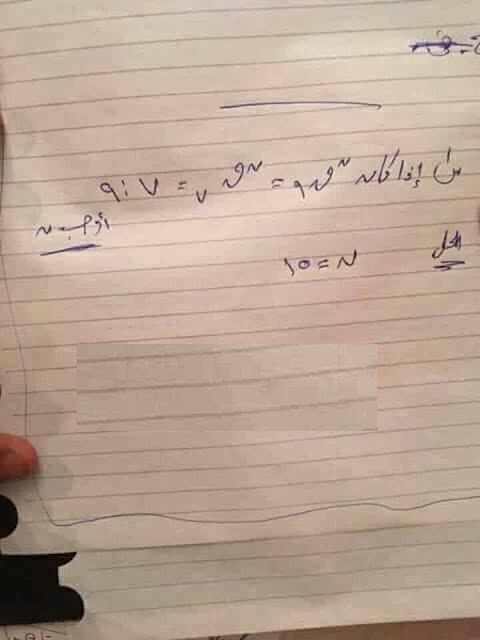 س إذا كان ن ق ٩ = ن ق ٧ = ٧ : ٩
أوجد ن
الحل ن = ١٥